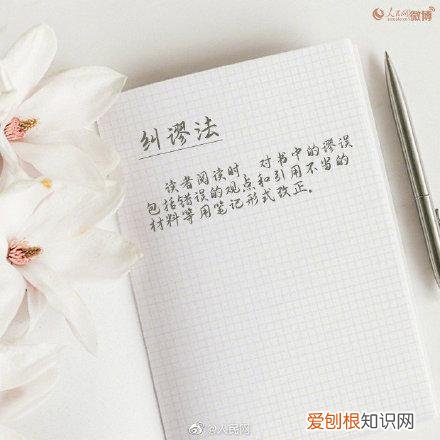 人民网微博
纠谬法
读者阅读时 对书中的谬误
包括错误的观点和引用不当的
材料等用笔记形式改正。
@人民网
爱刨根知识网